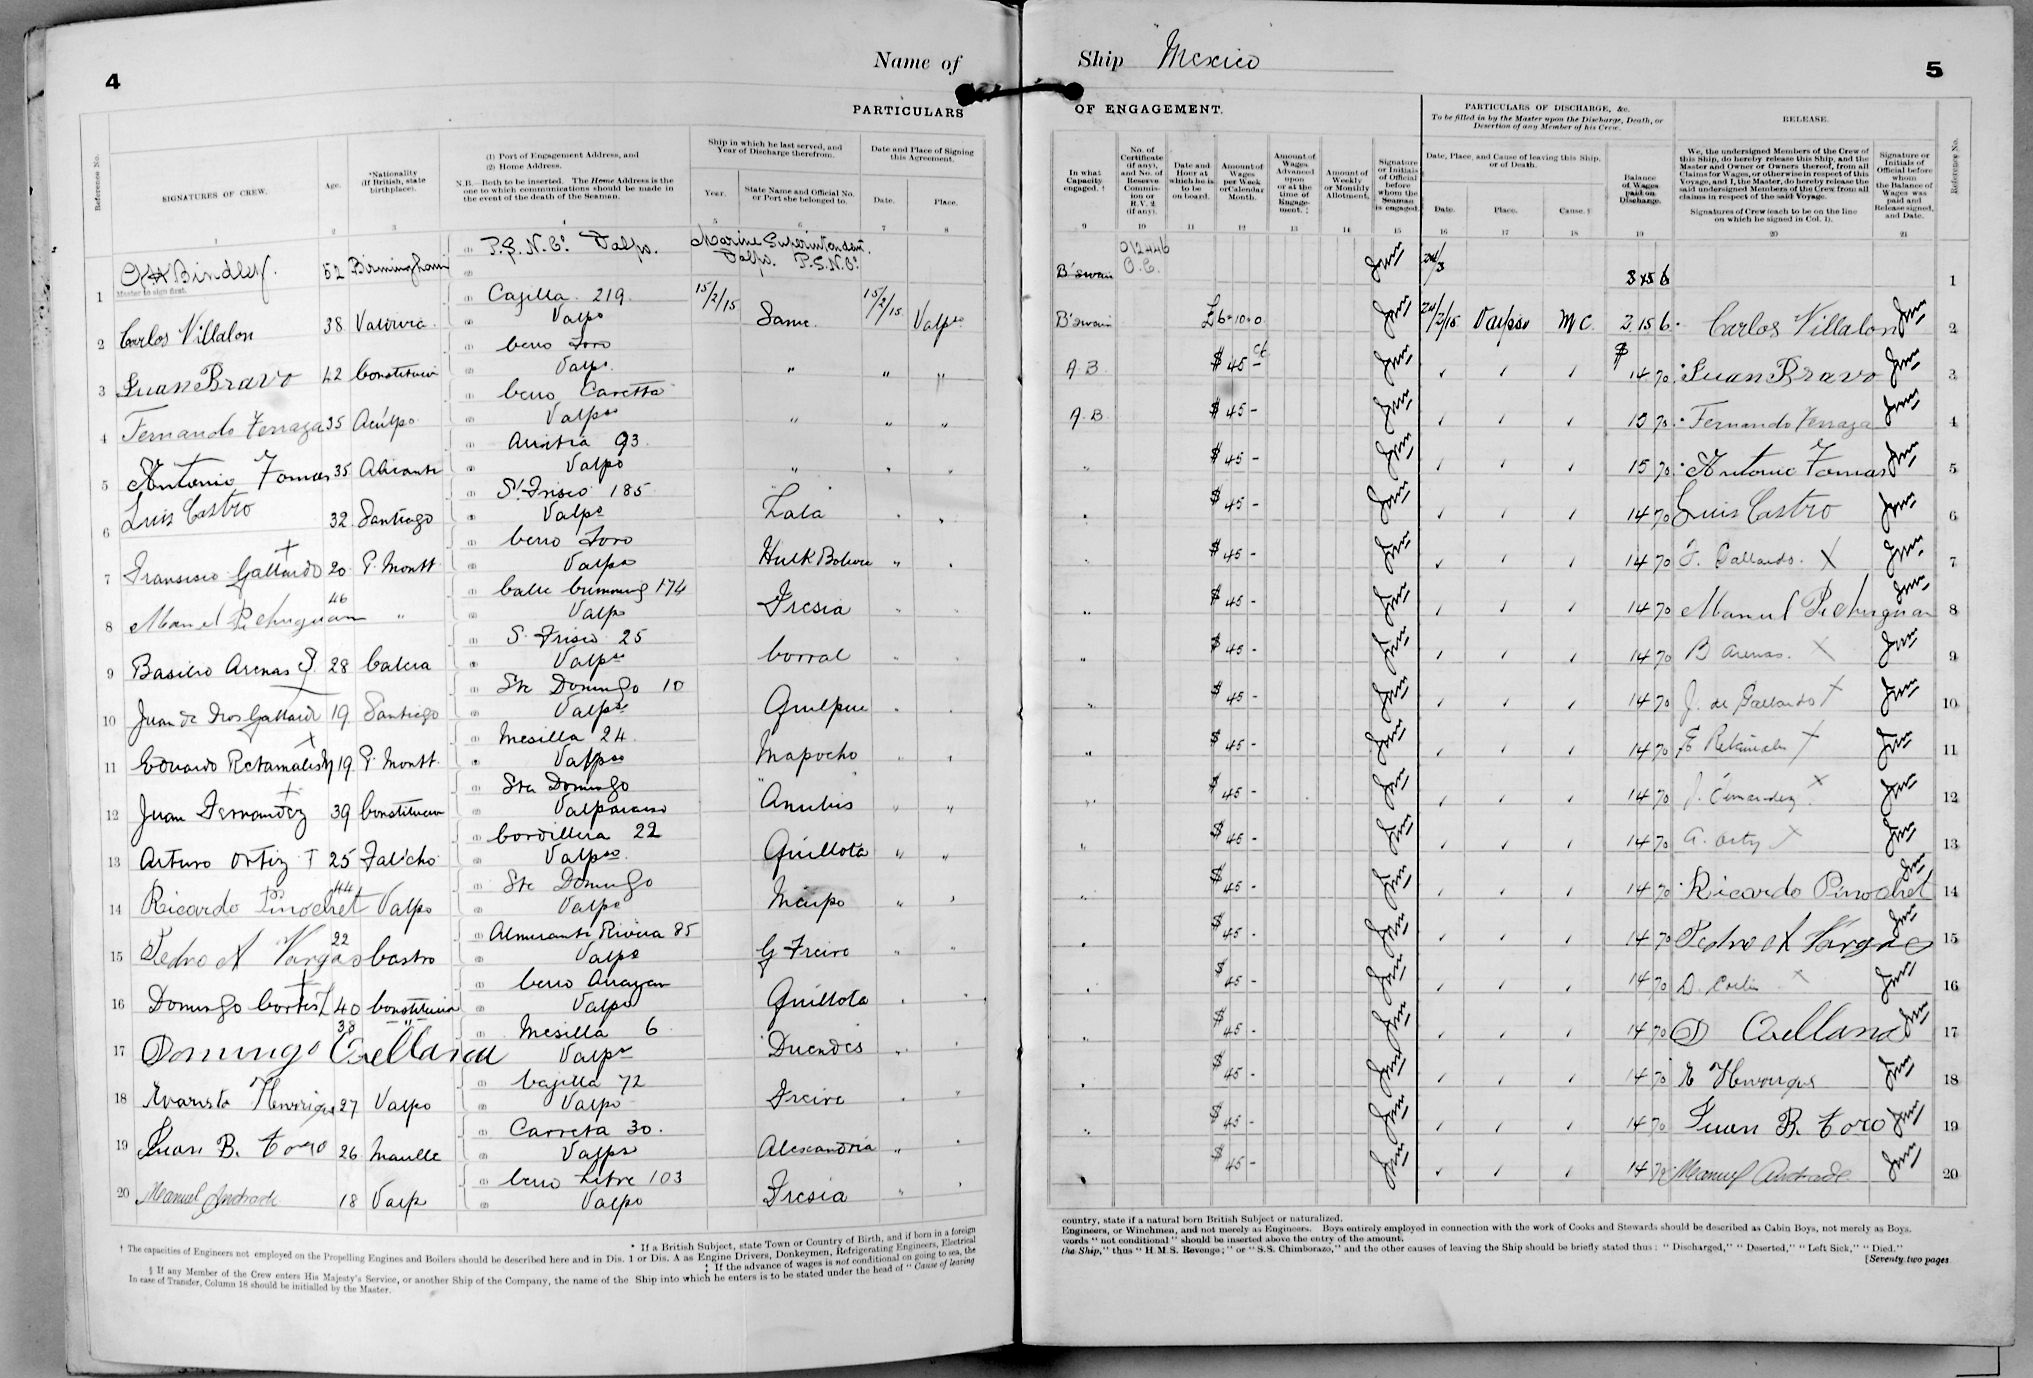 4
Name of
Ship Mexico
5
PARTICULARS
OF ENGAGEMENT.
PARTICULARS OF DISCHARGE, &c.
To be filled in by the Master upon the Discharge, Death, or Desertion of any Member of his Crew.
RELEASE.
Reference No.
SIGNATURES OF CREW.
Age.
*Nationality (If British, state birthplace).
(1) Port of Engagement Address, and
(2) Home Address.
N.B.—Both to be inserted. The Home Address is the one to which communications should be made in the event of the death of the Seaman.
Ship in which he last served, and Year of Discharge therefrom.
Year.
State Name and Official No. or Port she belonged to.
Date and Place of Signing this Agreement.
Date.
Place.
In what Capacity engaged. †
No. of Certificate (if any), and No. of Reserve Commission or R.V. 2 (if any).
Date and Hour at which he is to be on board.
Amount of Wages per Week or Calendar Month.
Amount of Wages Advanced upon or at the time of Engagement. ‡
Amount of Weekly or Monthly Allotment.
Signature or Initials of Official before whom the Seaman is engaged.
Date, Place, and Cause of leaving this Ship, or of Death.
Date.
Place.
Cause. §
Balance of Wages paid on Discharge.
We, the undersigned Members of the Crew of this Ship, do hereby release this Ship, and the Master and Owner or Owners thereof, from all Claims for Wages, or otherwise in respect of this Voyage, and I, the Master, do hereby release the said undersigned Members of the Crew from all claims in respect of the said Voyage.
Signatures of Crew (each to be on the line on which he signed in Col. 1).
Signature or Initials of Official before whom the Balance of Wages was paid and Release signed, and Date.
Reference No.
1 2 3 4 5 6 7 8 9 10 11 12 13 14 15 16 17 18 19 20 21
1 Bindley. 52 Birmingham P.S.N.Co. Valpo. Marine Superintendent. Valpo. P.S.N.Co. B'swain 012446 O.C. 24/3 1
Master to sign first.
2 Carlos Villalon 38 Valdivia Casilla 219 Valpo 15/2/15 Same. 15/2/15 Valpso B'swain £6-10-0 Valpso M C. 3 15 6 Carlos Villalon 2
3 Juan Bravo 42 Constitucion Cerro Toro Valpo. " " " A.B. $45- $ 14 70 Juan Bravo 3
4 Fernando Terraza 35 Cerro Caretta Valpso " " " A.B $45- 70 Fernando Terraza 4
5 Antonio Tomas 35 Alicante Austria 93 Valpo " " " " $45- 15 70 Antonio Tomas 5
6 Luis Castro 32 Santiago 185 Valpo $45- 14 70 Luis Castro 6
7 Fransisco Gallardo 20 P. Montt Cerro Toro Valpso Hulk " $45- 14 70 F. Gallardo. X 7
8 Manuel Pichuguan 46 " Calle Cumming 174 Valpo Fresia " " $45- 14 70 Manuel Pichuguan 8
9 Basilio Arenas 28 Calera S. Frisco 25 Valpso Corral " " $45- 14 70 B Arenas. X 9
10 Juan de Dios Gallardo 19 Santiago Sto Domingo 10 Valpso Quilpue " $45- 14 70 J. de Gallardo X 10
11 Eduardo Retamales 19 P. Montt. Mesilla 24 Valpso Mapocho " " $45- 14 70 E Retamales X 11
12 Juan Fernandez 39 Constitucion Sto Domingo Valparaiso "Anubis " " " $45- 14 70 X 12
13 Arturo Ortiz 25 Cordillera 22 Valpso Quillota " " " $45- 14 70 A. Ortiz X 13
14 Ricardo Pinochet 44 Valpo Sto Domingo Valpo Maipo " " " $45- 14 70 Ricardo Pinochet 14
15 Pedro A Vargas 22 Castro Almirante Rivera 85 Valpo G Freire " " $45- 14 70 Pedro A Vargas 15
16 Domingo Cortes 40 Constitucion Cerro Arrayan Valpo Quillota " $45- 14 70 X 16
17 Domingo Orellana 38 " Mesilla 6 Valpo Duendes " $45- 14 70 D Orellana 17
18 Evaristo Henriques 27 Valpo Cajilla 72 Valpo Freire " $45- 14 70 E Henriques 18
19 Juan B. Toro 26 Maulle Carreta 30. Valpso Alexandria " $45- 14 70 Juan B. Toro 19
20 Manuel Andrade 18 Valp Cerro Litre 103 Valpo Fresia " $45- 14 70 Manuel Andrade 20
* If a British Subject, state Town or Country of Birth, and if born in a foreign
country, state if a natural born British Subject or naturalized.
† The capacities of Engineers not employed on the Propelling Engines and Boilers should be described here and in Dis. 1 or Dis. A as Engine Drivers, Donkeymen, Refrigerating Engineers, Electrical
Engineers, or Winchmen, and not merely as Engineers. Boys entirely employed in connection with the work of Cooks and Stewards should be described as Cabin Boys, not merely as Boys.
‡ If the advance of wages is not conditional on going to sea, the
words "not conditional" should be inserted above the entry of the amount.
§ If any Member of the Crew enters His Majesty's Service, or another Ship of the Company, the name of the Ship into which he enters is to be stated under the head of "Cause of leaving
the Ship," thus "H.M.S. Revenge;" or "S.S. Chimborazo," and the other causes of leaving the Ship should be briefly stated thus: "Discharged," "Deserted," "Left Sick," "Died."
In case of Transfer, Column 18 should be initialled by the Master.
[Seventy two pages